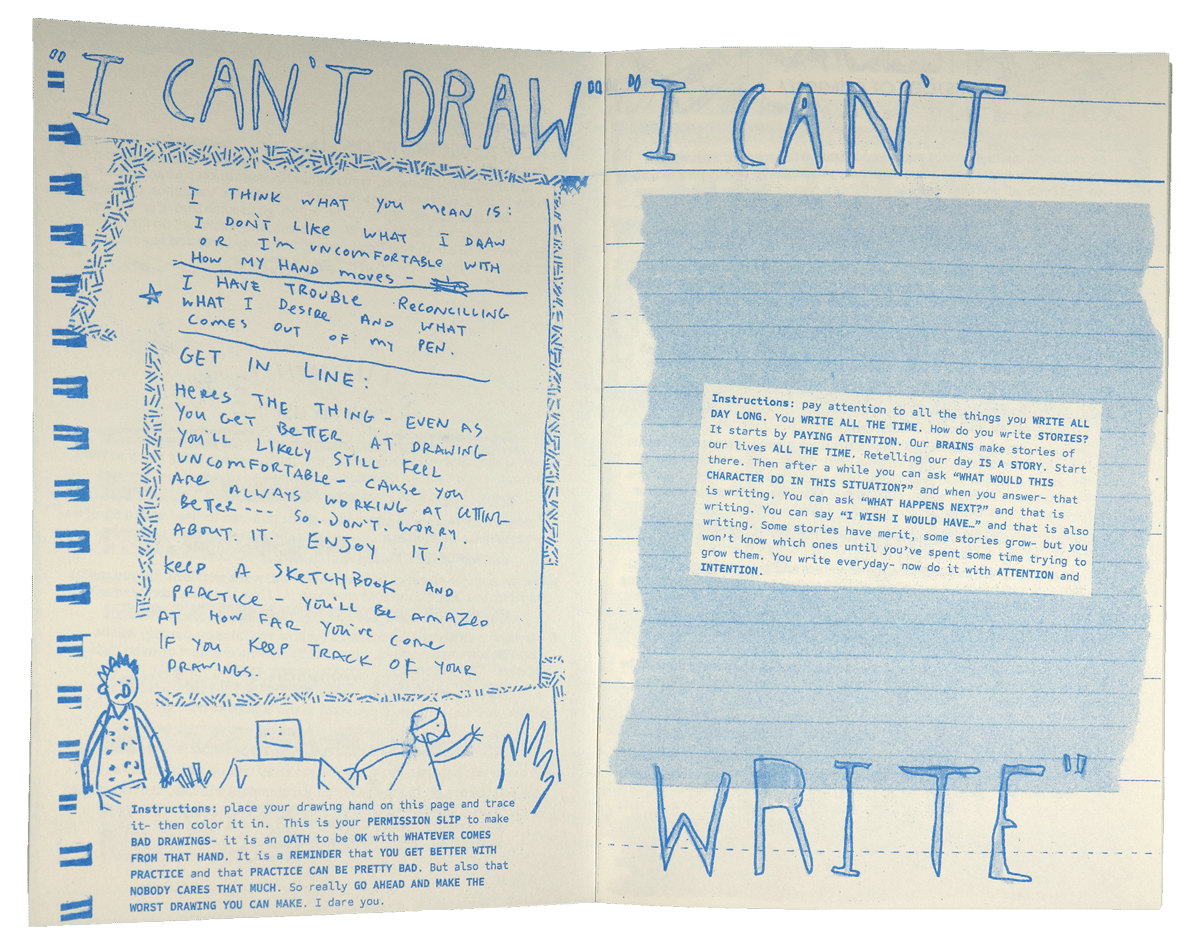 "I CAN'T DRAW"
I THINK WHAT YOU MEAN IS:
I DON'T LIKE WHAT I DRAW
OR I'M UNCOMFORTABLE WITH
HOW MY HAND MOVES -
I HAVE TROUBLE RECONCILLING
WHAT I DESIRE AND WHAT
COMES OUT OF MY PEN.
GET IN LINE:
HERES THE THING - EVEN AS
YOU GET BETTER AT DRAWING
YOU'LL LIKELY STILL FEEL
UNCOMFORTABLE - CAUSE YOU
ARE ALWAYS WORKING AT GETTING
BETTER --- SO. DON'T. WORRY.
ABOUT. IT. ENJOY IT!
KEEP A SKETCHBOOK AND
PRACTICE - YOU'LL BE AMAZED
AT HOW FAR YOU'VE COME
IF YOU KEEP TRACK OF YOUR
DRAWINGS.
Instructions: place your drawing hand on this page and trace
it- then color it in. This is your PERMISSION SLIP to make
BAD DRAWINGS- it is an OATH to be OK with WHATEVER COMES
FROM THAT HAND. It is a REMINDER that YOU GET BETTER WITH
PRACTICE and that PRACTICE CAN BE PRETTY BAD. But also that
NOBODY CARES THAT MUCH. So really GO AHEAD AND MAKE THE
WORST DRAWING YOU CAN MAKE. I dare you.
"I CAN'T
Instructions: pay attention to all the things you WRITE ALL
DAY LONG. You WRITE ALL THE TIME. How do you write STORIES?
It starts by PAYING ATTENTION. Our BRAINS make stories of
our lives ALL THE TIME. Retelling our day IS A STORY. Start
there. Then after a while you can ask “WHAT WOULD THIS
CHARACTER DO IN THIS SITUATION?” and when you answer- that
is writing. You can ask “WHAT HAPPENS NEXT?” and that is
writing. You can say “I WISH I WOULD HAVE…” and that is also
writing. Some stories have merit, some stories grow- but you
won’t know which ones until you’ve spent some time trying to
grow them. You write everyday- now do it with ATTENTION and
INTENTION.
WRITE"